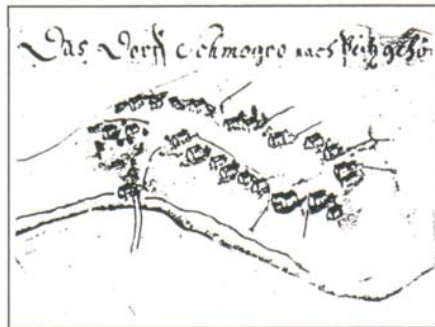 Das Dorff Schmogro nach Peitz gehö